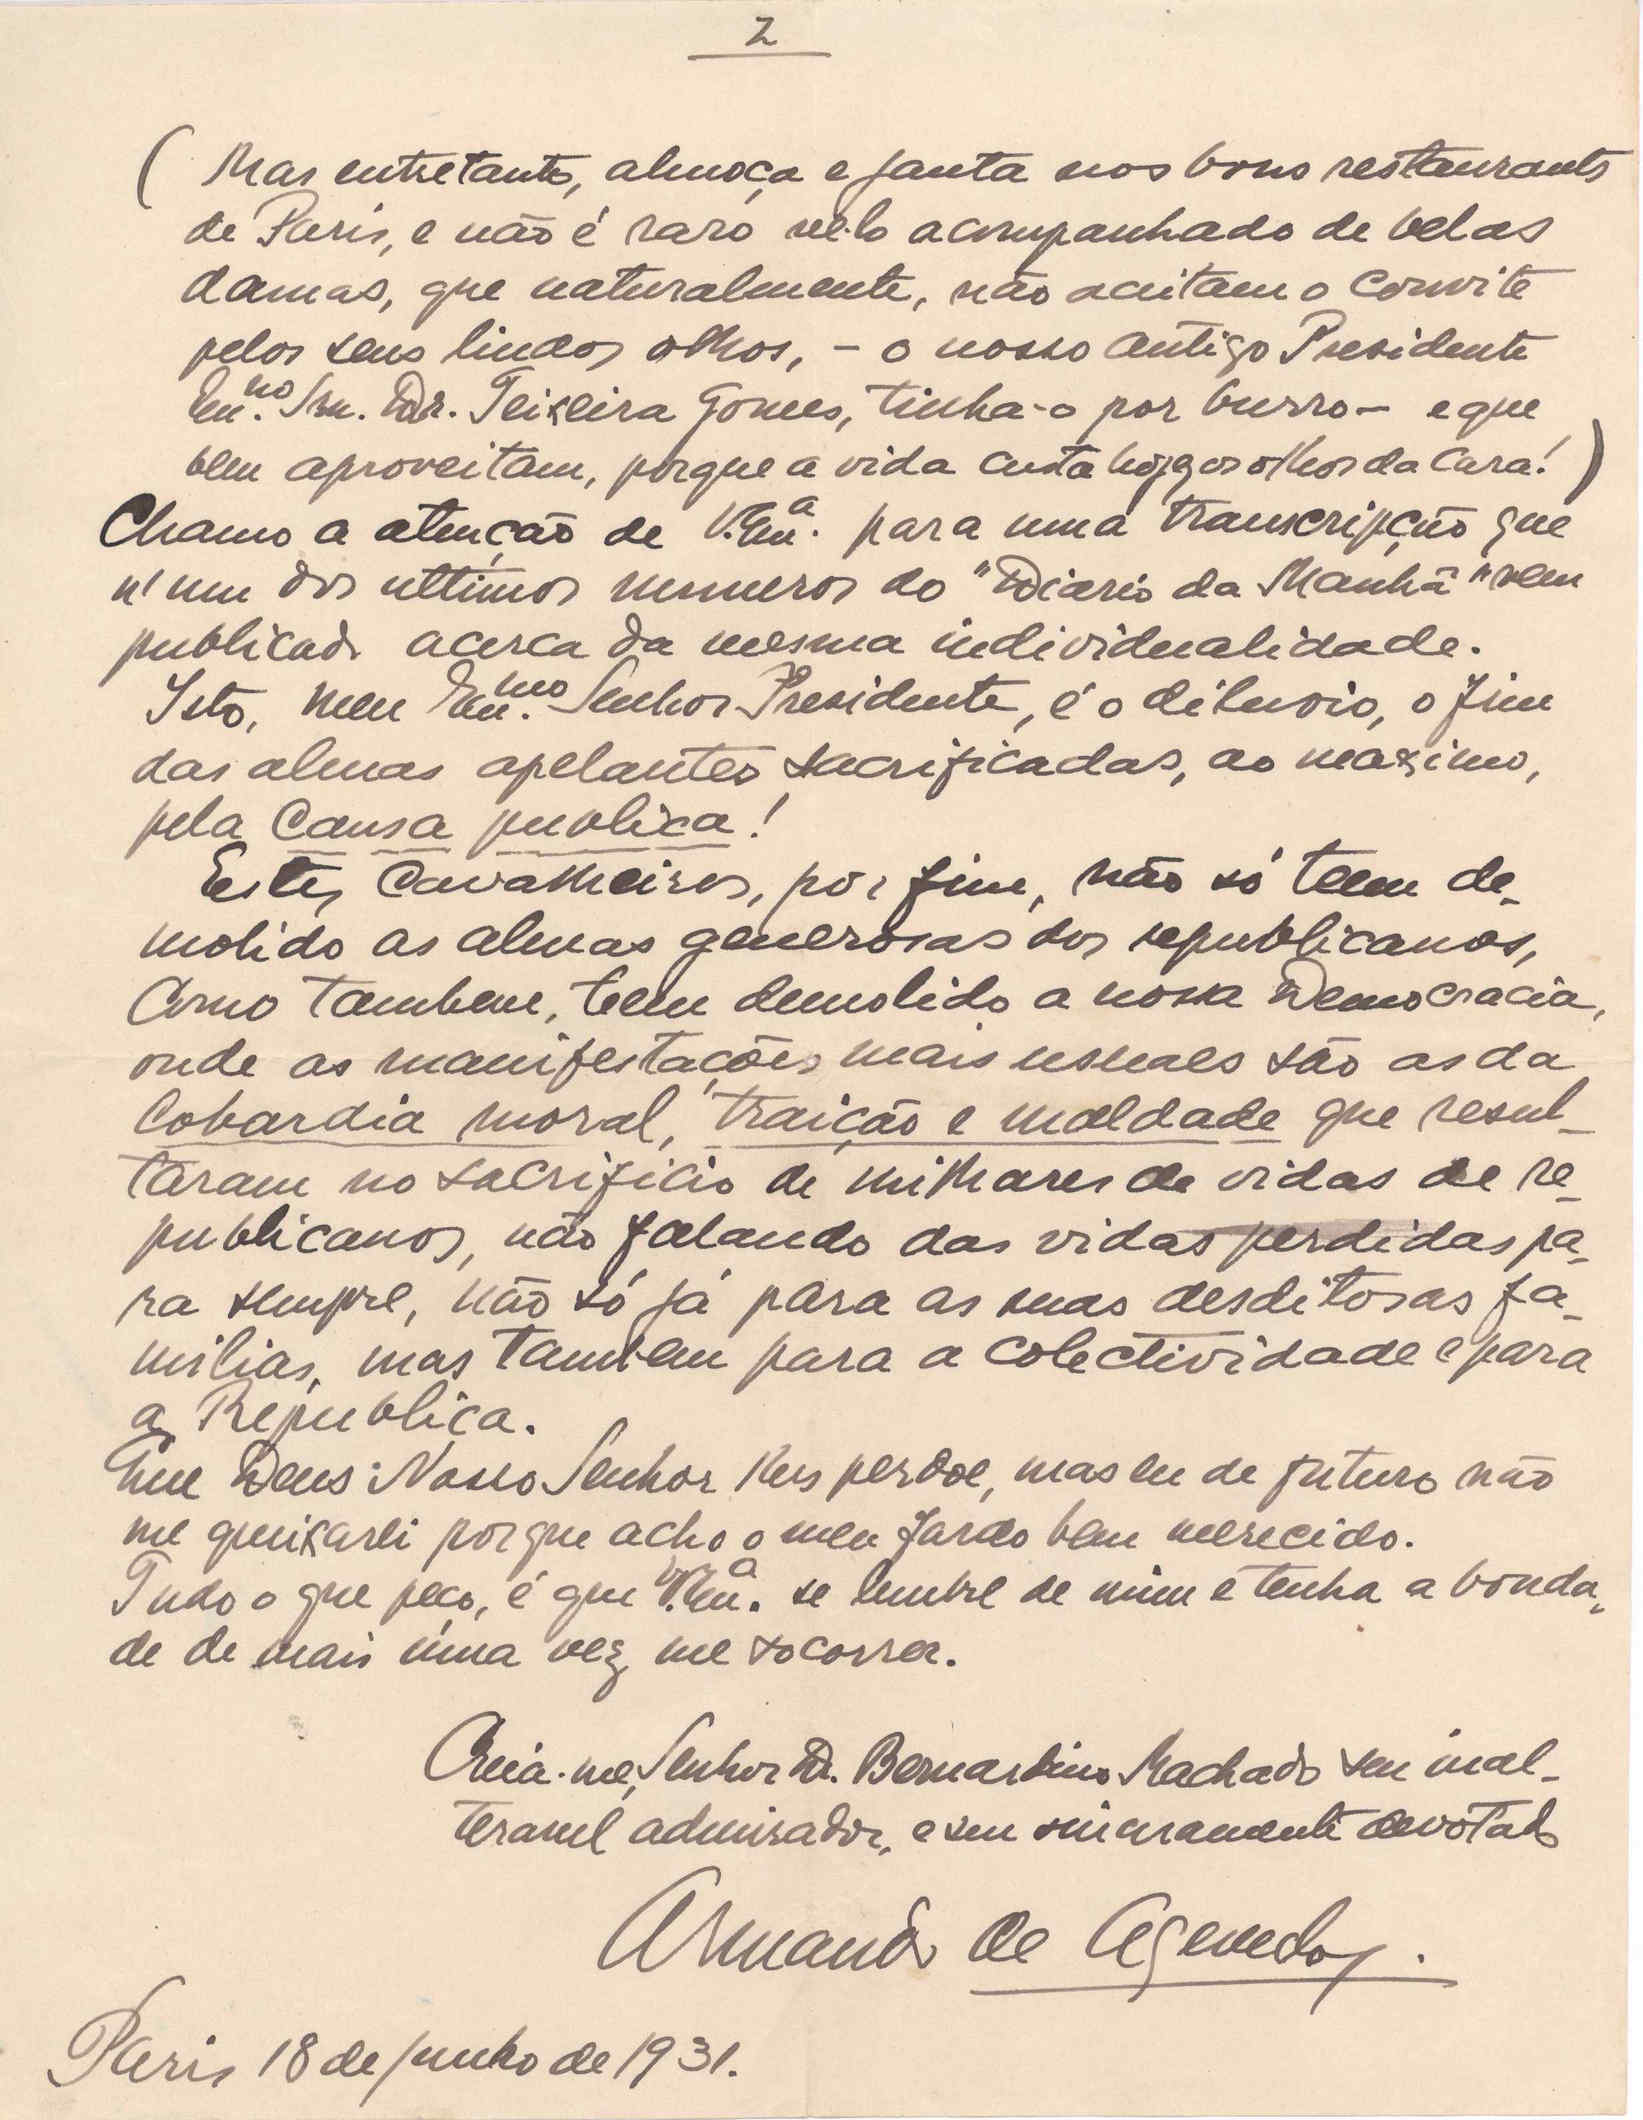 2
( Mas entretanto, almoça e janta nos bons restaurants
de Paris, e não é raro vê-lo acompanhado de belas
damas, que naturalmente, não aceitam o convite
pelos seus lindos olhos, – o nosso antigo Presidente
Exmo. Snr. Dr. Teixeira Gomes, tinha-o por burro – e que
bem aproveitam, porque a vida custa hoje os olhos da cara! )
Chamo a atenção de V. Exa. para uma transcripção que
n'um dos ultimos numeros do "Diario da Manhã" vem
publicado acerca da mesma individualidade.
Isto, meu Exmo. Senhor Presidente, é o diluvio, o fim
das almas apelantes sacrificadas, ao maximo,
pela Causa publica!
Estes Cavalheiros, por fim, não só teem de-
molido as almas generosas dos republicanos,
como tambem, teem demolido a nossa Democracia,
onde as manifestações mais usuaes são as da
Cobardia moral, traição e maldade que resul-
taram no sacrificio de milhares de vidas de re-
publicanos, não falando das vidas perdidas pa-
ra sempre, não só já para as suas desditosas fa-
milias, mas tambem para a colectividade e para
a Republica.
Que Deus Nosso Senhor lhes perdoe, mas eu de futuro não
me queixarei porque acho o meu fardo bem merecido.
Tudo o que peço, é que V. Exa. se lembre de mim e tenha a bonda-
de de mais uma vez me socorrer.
Creia-me, Senhor Dr. Bernardino Machado seu inal-
teravel admirador, e seu sinceramente devotado
Armando de Azevedo.
Paris 18 de junho de 1931.